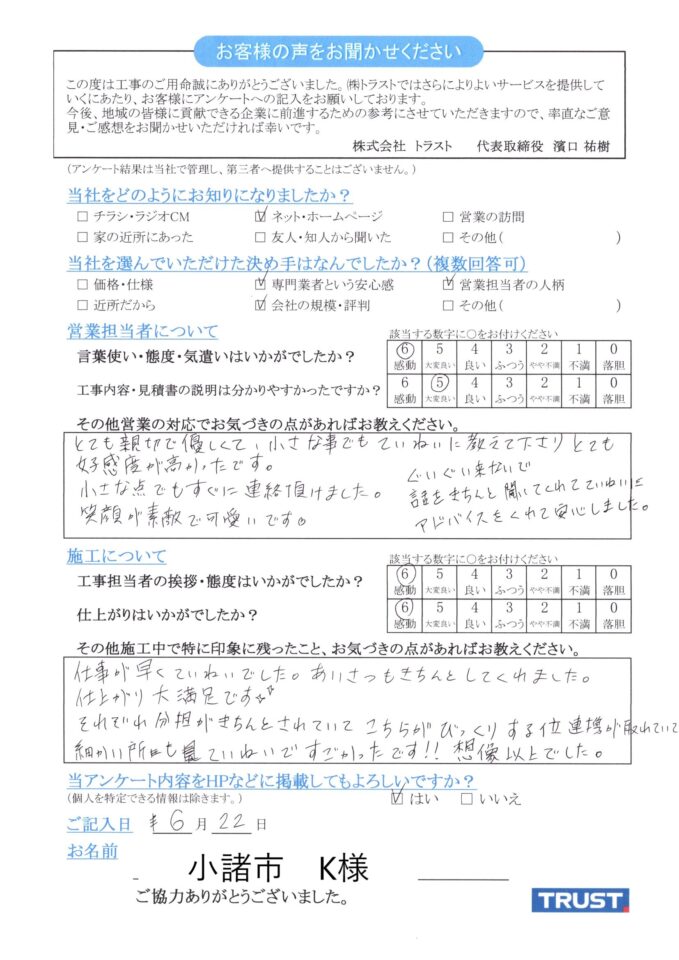 お客様の声をお聞かせください
この度は工事のご用命誠にありがとうございました。㈱トラストではさらによりよいサービスを提供して
いくにあたり、お客様にアンケートへの記入をお願いしております。
今後、地域の皆様に貢献できる企業に前進するための参考にさせていただきますので、率直なご意
見・ご感想をお聞かせいただければ幸いです。
株式会社 トラスト 代表取締役 濱口 祐樹
(アンケート結果は当社で管理し、第三者へ提供することはございません。)
当社をどのようにお知りになりましたか？
□ チラシ・ラジオCM ☑ ネット・ホームページ □ 営業の訪問
□ 家の近所にあった □ 友人・知人から聞いた □ その他( )
当社を選んでいただけた決め手はなんでしたか？(複数回答可)
□ 価格・仕様 ☑ 専門業者という安心感 ☑ 営業担当者の人柄
□ 近所だから ☑ 会社の規模・評判 □ その他( )
営業担当者について 該当する数字に○をお付けください
言葉使い・態度・気遣いはいかがでしたか？ 6 5 4 3 2 1 0
感動 大変良い 良い ふつう やや不満 不満 落胆
工事内容・見積書の説明は分かりやすかったですか？ 6 5 4 3 2 1 0
感動 大変良い 良い ふつう やや不満 不満 落胆
その他営業の対応でお気づきの点があればお教えください。
とても親切で優しくて、小さな事でもていねいに教えて下さりとても
好感度が高かったです。
小さな点でもすぐに連絡頂けました。
笑顔が素敵で可愛いです。
ぐいぐい来ないで
話をきちんと聞いてくれてていねいに
アドバイスをくれて安心しました。
施工について 該当する数字に○をお付けください
工事担当者の挨拶・態度はいかがでしたか？ 6 5 4 3 2 1 0
感動 大変良い 良い ふつう やや不満 不満 落胆
仕上がりはいかがでしたか？ 6 5 4 3 2 1 0
感動 大変良い 良い ふつう やや不満 不満 落胆
その他施工中で特に印象に残ったこと、お気づきの点があればお教えください。
仕事が早くていねいでした。あいさつもきちんとしてくれました。
仕上がり大満足です☆☆
それぞれ分担がきちんとされていてこちらがびっくりする位連携が取れていて
細かい所も ていねいですごかったです!! 想像以上でした。
当アンケート内容をHPなどに掲載してもよろしいですか？
(個人を特定できる情報は除きます。) ☑ はい □ いいえ
ご記入日 6 月 22 日
お名前
小諸市 K様
ご協力ありがとうございました。
TRUST.